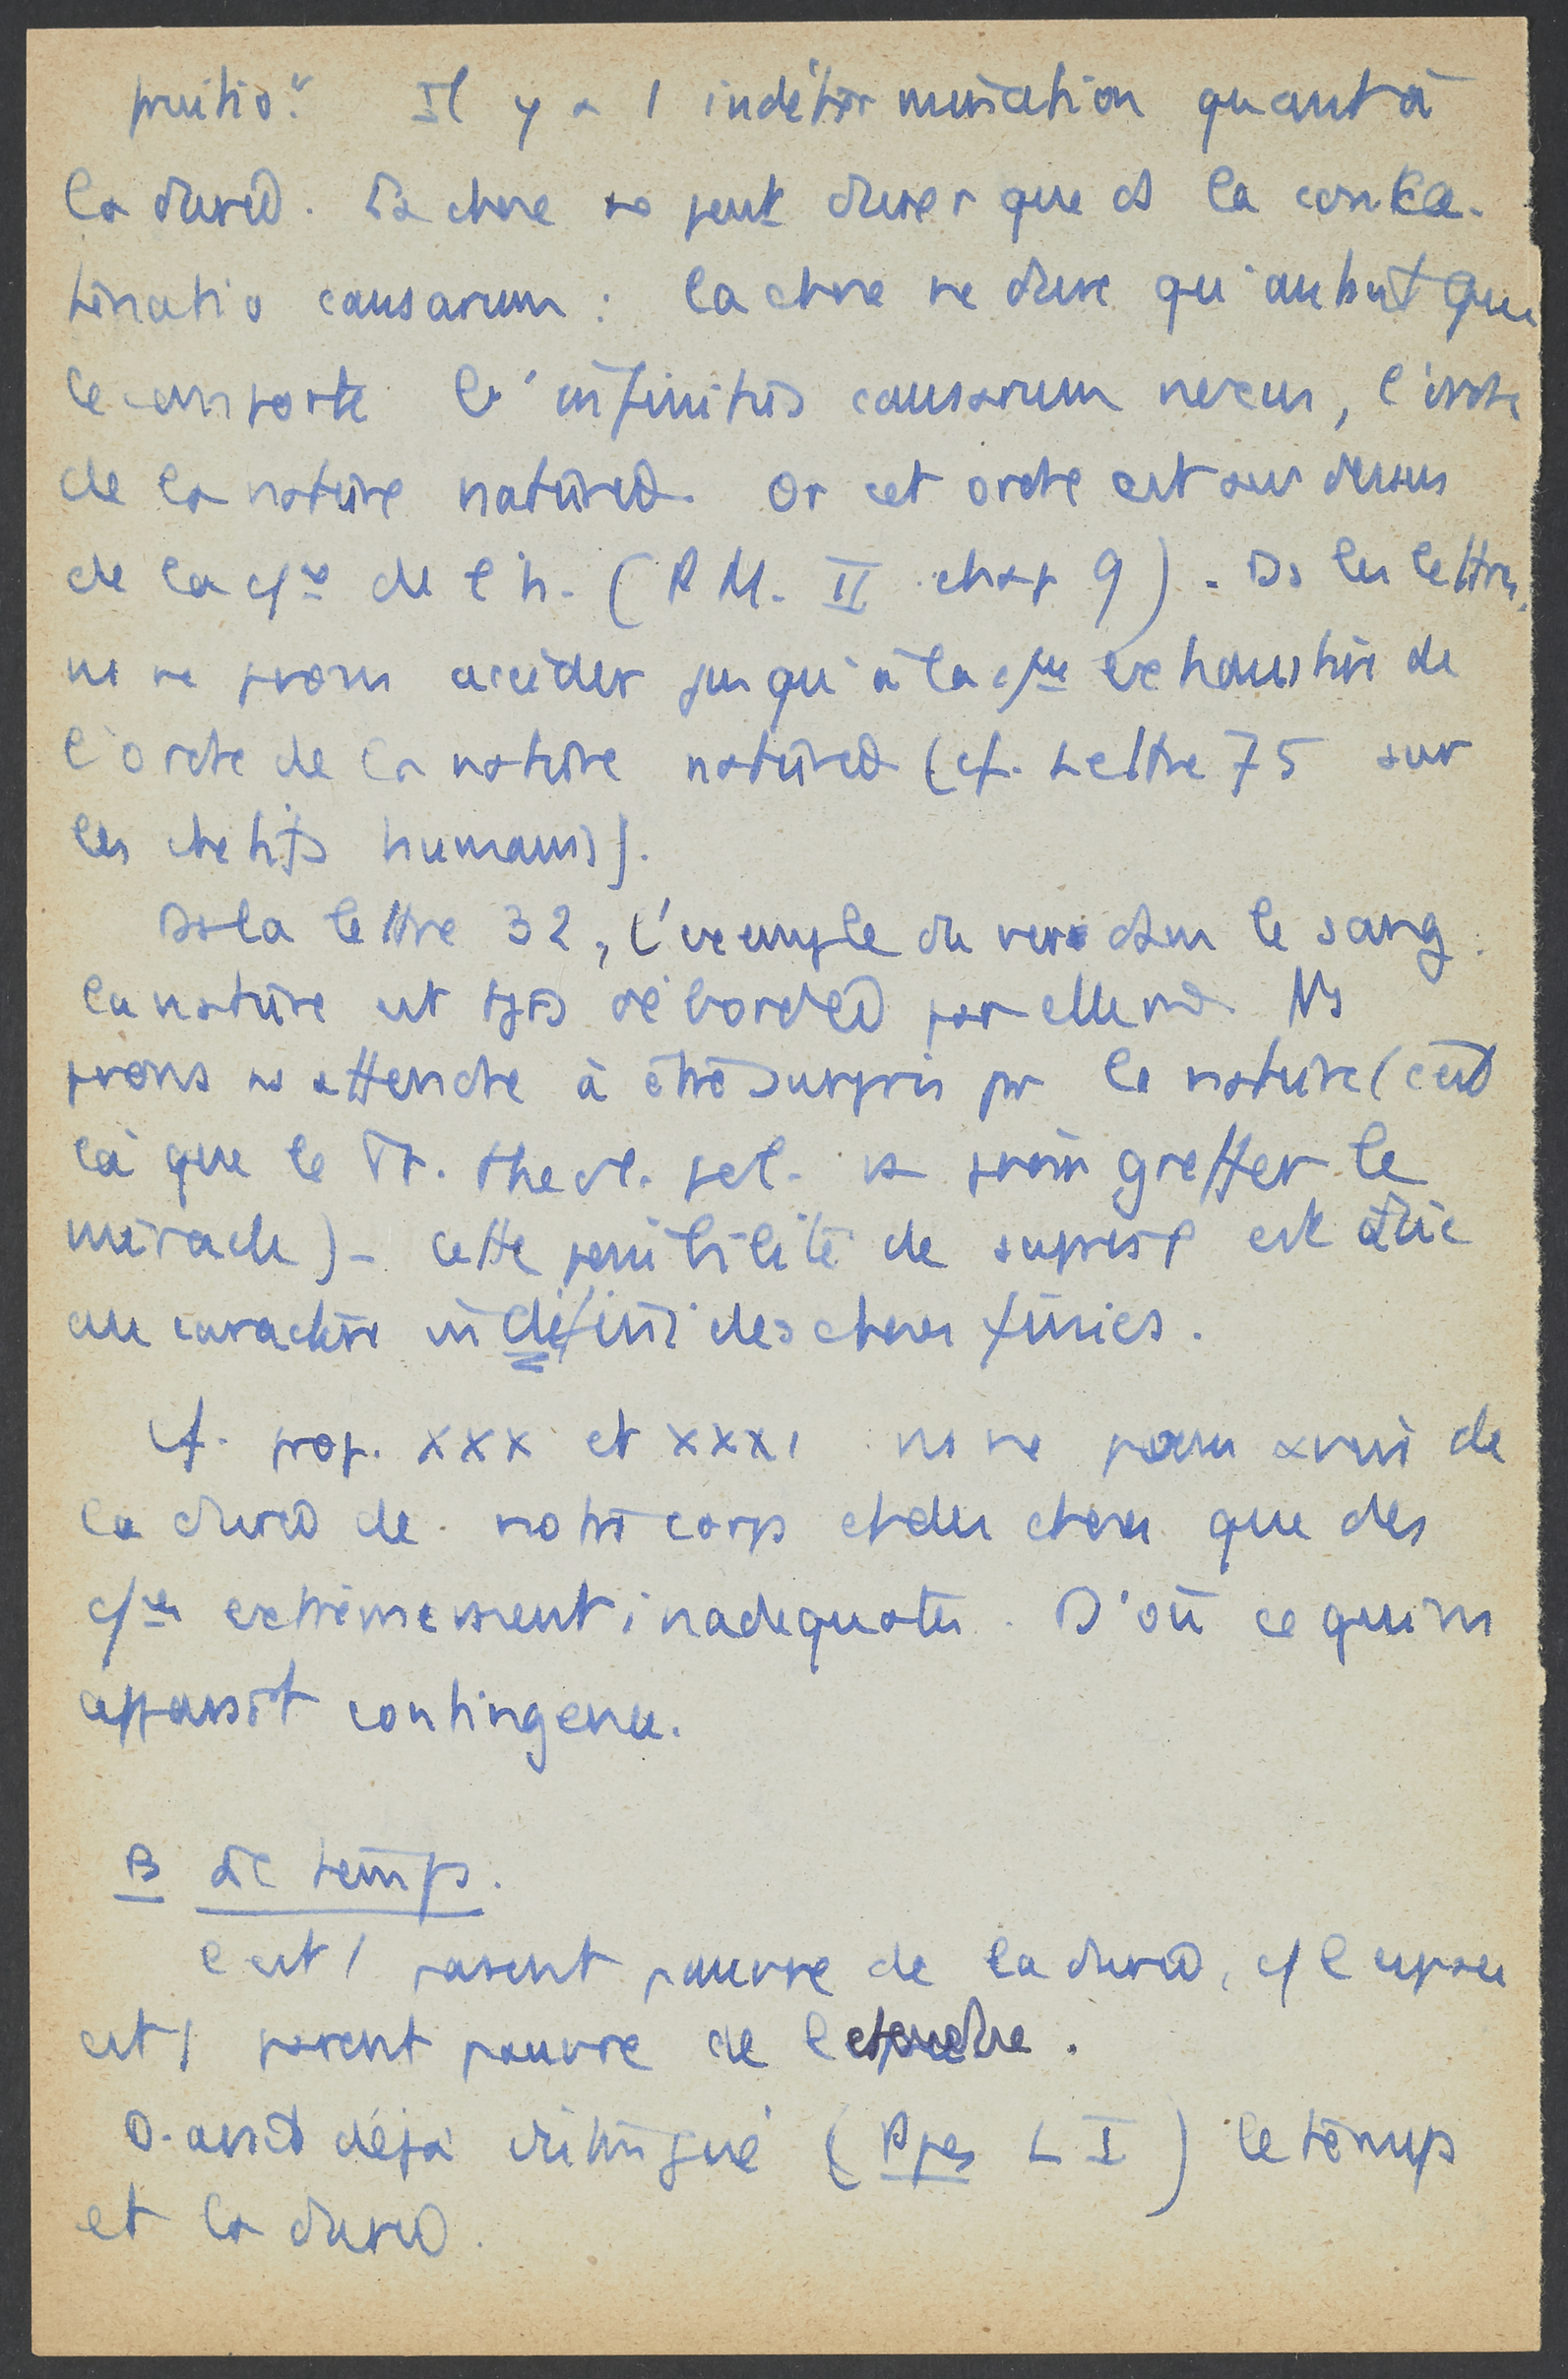 fruitio." Il y a 1 indétermination quant à
la durée. La chose ne peut durer que ds la conca-
tenatio causarum : la chose ne dure qu'autant que
le comporte l'infinitus causarum nexus, l'ordre
de la nature naturée. Or cet ordre est au dessus
de la cfce de l'h. (P M. II chap 9). Ds les lettres,
ns ne pvons accéder jusqu'à la cfce exhaustive de
l'ordre de la nature naturée (cf. Lettre 75 sur
les chétifs humains).
Ds la lettre 32, l'exemple du ver dans le sang.
La nature est tjrs débordée par elle m. Ns
pvons ns attendre à être surpris pr la nature (c'est
là que le Tr. theol. pol. va pvoir greffer le
miracle) - cette possibilité de surprise est due
au caractère indéfini des choses finies.
Cf. prop. XXX et XXXI ns ne pvons avoir de
la durée de notre corps et des choses que des
cfces extrêmement inadéquates. D'où ce qui ns
apparaît contingence.
B Le temps.
C'est 1 parent pauvre de la durée, cf l'espace
est 1 parent pauvre de l'étendue.
D. avait déjà distingué (Ppes L I) le temps
et la durée.